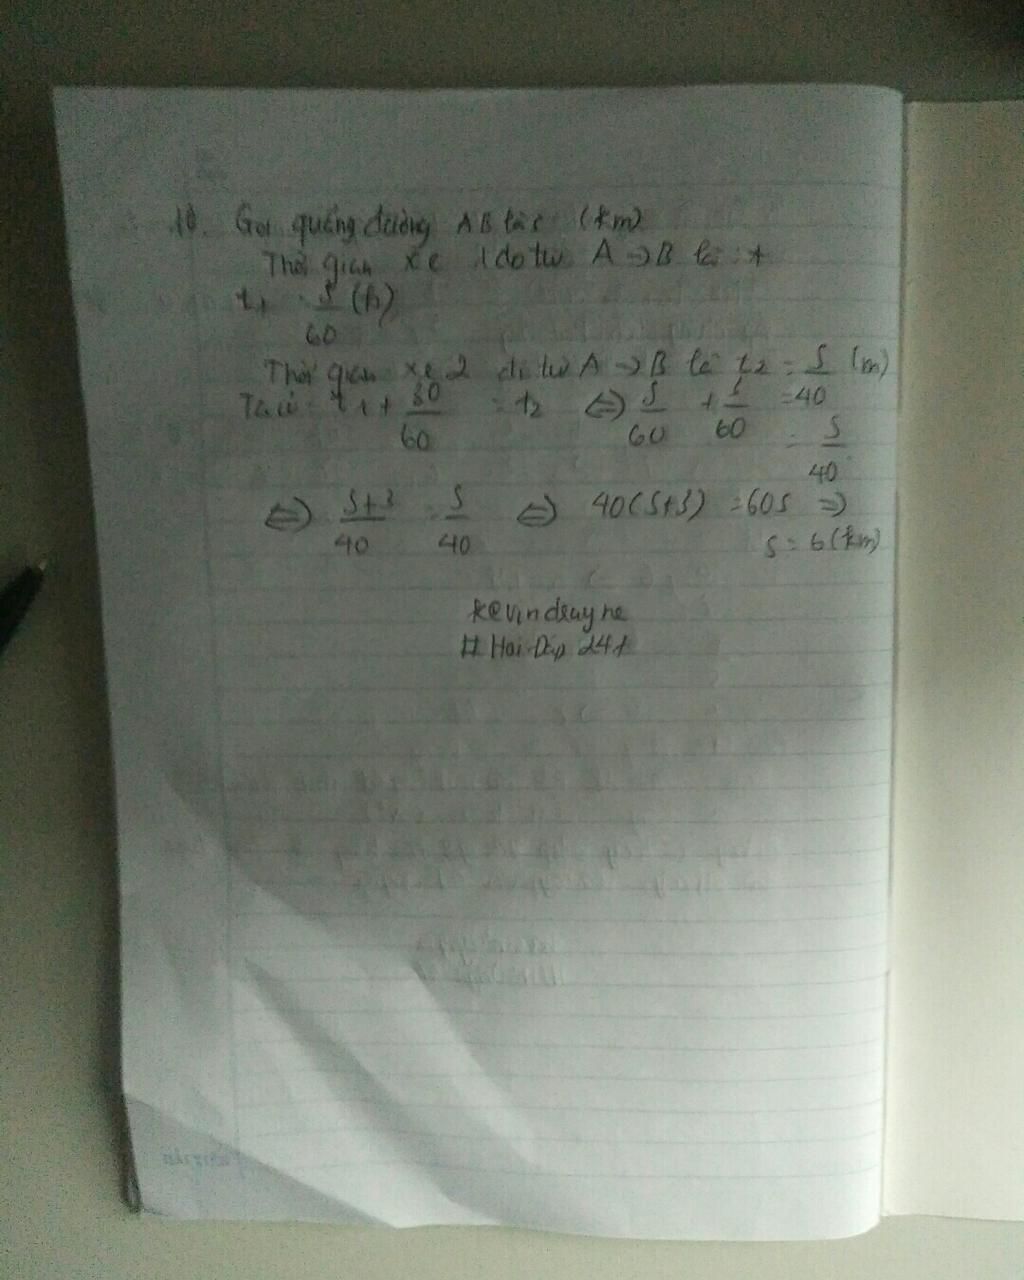 10. Gọi quãng đường AB là S (km)
Thời gian xe 1 đo từ A → B là: t
t1 = S/60 (h)
Thời gian xe 2 đi từ A → B là t2 = S/40 (m)
Ta có: t1 + 30/60 = t2 ⇔ S/60 + S/60 = 40
S/40
⇔ S+3/40 = S/40 ⇔ 40(S+3) = 60S ⇒
S = 6 (km)
#Hoi Dap 24